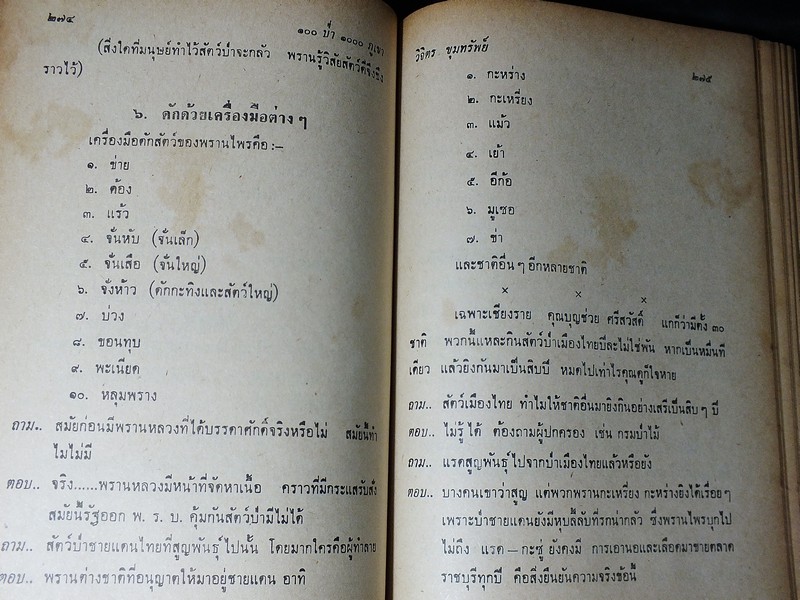 ๒๗๔
๑๐๐ ป่า ๑๐๐๐ ภูเขา
(สิ่งใดที่มนุษย์ทำไว้สัตว์ป่าจะกลัว พรานรู้วิสัยสัตว์ดีจึงขึง
ราวไว้)
๖. ดักด้วยเครื่องมือต่าง ๆ
เครื่องมือดักสัตว์ของพรานไพรคือ :—
๑. ข่าย
๒. ต้อง
๓. แร้ว
๔. จั่นหับ (จั่นเล็ก)
๕. จั่นเสือ (จั่นใหญ่)
๖. จั่งห้าว (ดักกะทิงและสัตว์ใหญ่)
๗. บ่วง
๘. ขอนทุบ
๙. พะเนียด
๑๐. หลุมพราง
ถาม.. สมัยก่อนมีพรานหลวงที่ได้บรรดาศักดิ์จริงหรือไม่ สมัยนี้ทำ
ไมไม่มี
ตอบ.. จริง......พรานหลวงมีหน้าที่จัดหาเนื้อ คราวที่มีกระแสรับสั่ง
สมัยนี้รัฐออก พ. ร. บ. คุ้มกันสัตว์ป่ามีไม่ได้
ถาม.. สัตว์ป่าชายแดนไทยที่สูญพันธุ์ไปนั้น โดยมากใครคือผู้ทำลาย
ตอบ.. พรานต่างชาติที่อนุญาตให้มาอยู่ชายแดน อาทิ
วิจิตร ชุมทรัพย์
๒๗๕
๑. กะหร่าง
๒. กะเหรี่ยง
๓. แม้ว
๔. เย้า
๕. อีก้อ
๖. มูเซอ
๗. ข่า
และชาติอื่น ๆ อีกหลายชาติ
× × ×
เฉพาะเชียงราย คุณบุญช่วย ศรีสวัสดิ์ แกก็ว่ามีตั้ง ๓๐
ชาติ พวกนี้แหละกินสัตว์ป่าเมืองไทยปีละไม่ใช่พัน หากเป็นหมื่นที
เดียว แล้วยิงกันมาเป็นสิบปี หมดไปเท่าไรคุณดูก็ใจหาย
ถาม.. สัตว์เมืองไทย ทำไมให้ชาติอื่นมายิงกินอย่างเสรีเป็นสิบ ๆ ปี
ตอบ.. ไม่รู้ได้ ต้องถามผู้ปกครอง เช่น กรมป่าไม้
ถาม.. แรดสูญพันธุ์ไปจากป่าเมืองไทยแล้วหรือยัง
ตอบ.. บางคนเขาว่าสูญ แต่พวกพรานกะเหรี่ยง กะหร่างยิงได้เรื่อยๆ
เพราะป่าชายแดนยังมีหุบลี้ลับที่รกน่ากลัว ซึ่งพรานไพรบุกไป
ไม่ถึง แรด—กะซู่ ยังคงมี การเอานอและเลือดมาขายตลาด
ราชบุรีทุกปี คือสิ่งยืนยันความจริงข้อนี้